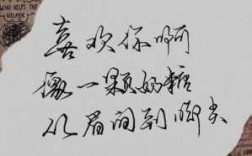 喜欢你啊
像一颗奶糖
从眉间到脚尖